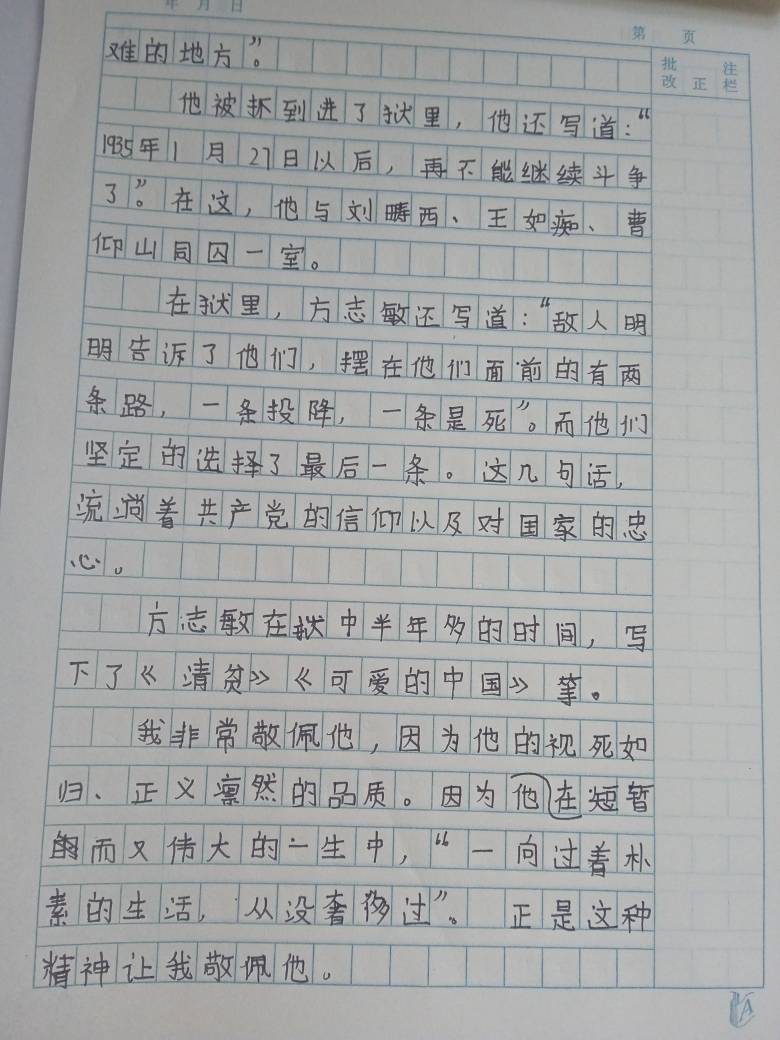 年 月 日
第 页
批改 正 注栏
难的地方”。
他被抓到进了狱里，他还写道：“
1935年1月27日以后，再不能继续斗争
了”。在这，他与刘畴西、王如痴、曹
仰山同囚一室。
在狱里，方志敏还写道：“敌人明
明告诉了他们，摆在他们面前的有两
条路，一条投降，一条是死”。而他们
坚定的选择了最后一条。这几句话，
流淌着共产党的信仰以及对国家的忠
心。
方志敏在狱中半年多的时间，写
下了《清贫》《可爱的中国》等。
我非常敬佩他，因为他的视死如
归、正义凛然的品质。因为他在短暂
而又伟大的一生中，“一向过着朴
素的生活，从没奢侈过”。正是这种
精神让我敬佩他。